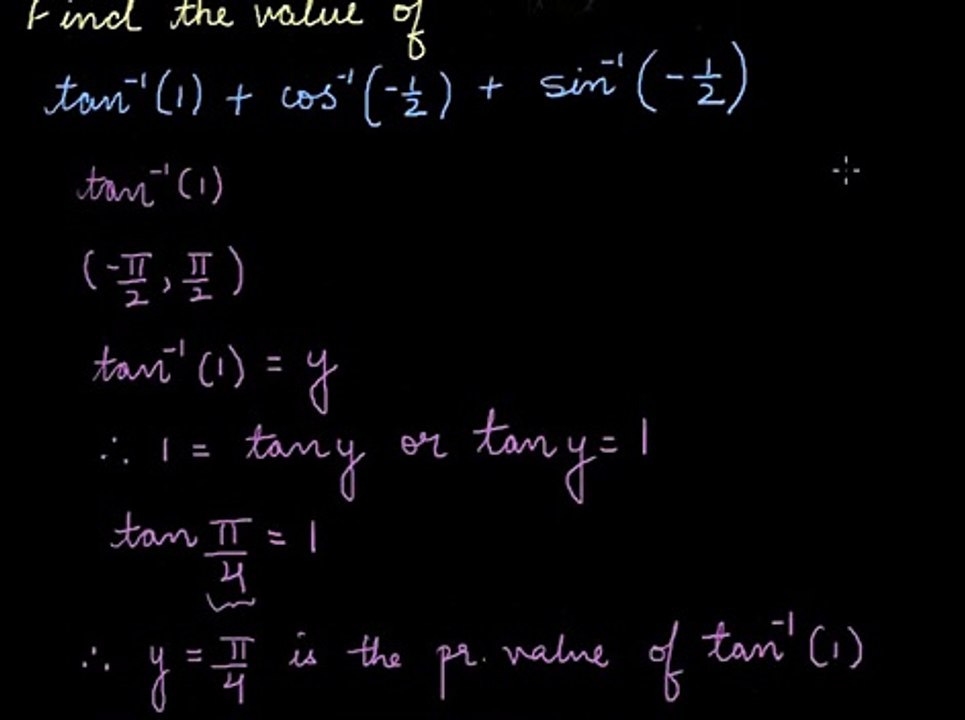 Find the value of
tan⁻¹(1) + cos⁻¹(-1/2) + sin⁻¹(-1/2)
tan⁻¹(1)
(-π/2, π/2)
tan⁻¹(1) = y
∴ 1 = tan y or tan y = 1
tan π/4 = 1
∴ y = π/4 is the pr. value of tan⁻¹(1)